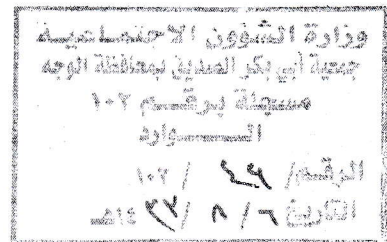 وزارة الشؤون الاجتماعية
جمعية أبي بكر الصديق بمحافظة الوجه
مسجلة برقم ١٠٢
الوارد
الرقم / ٤٩ / ١٠٢
التاريخ ٦ / ٨ / ١٤٣٣هـ